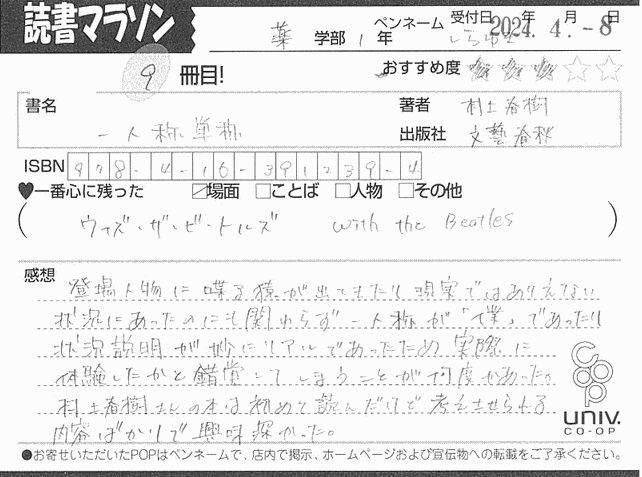 読書マラソン
薬 学部 1 年 ペンネーム しらゆき 受付日 2024年 4月 -8日
9 冊目! おすすめ度 ★★★☆☆
書名 著者 村上春樹
一人称単称 出版社 文藝春秋
ISBN 978-4-16-391239-4
♥一番心に残った ☑場面 □ことば □人物 □その他
(ウィズ・ザ・ビートルズ With the Beatles)
感想
登場人物に喋る猿が出てきたり現実ではありえない
状況にあったのにも関わらず一人称が「僕」であったり
状況説明が妙にリアルであったため実際に
体験したかと錯覚してしまうことが何度かあった。
村上春樹さんの本は初めて読んだけど考えさせられる
内容ばかりで興味深かった。
coop
UNIV.
CO-OP
●お寄せいただいたPOPはペンネームで、店内で掲示、ホームページおよび宣伝物への転載をご了承ください。